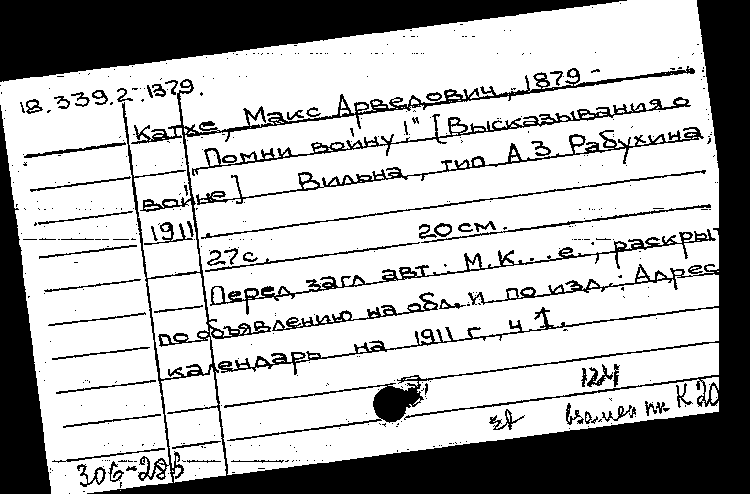 18.339.2.1379.
Катхе, Макс Арведович, 1879 -
"Помни войну!" [Высказывания о
войне] Вильна, тип. А.З. Рабухина,
1911.
27с. 20см.
Перед загл. авт.: М.К...е.; раскрыт
по объявлению на обл. и по изд.: Адрес
календарь на 1911 г., ч 1.
124
взамен К 20
306-28в